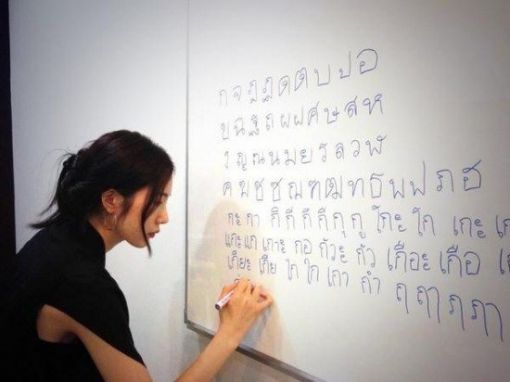 ก จ ฎ ฏ ด ต บ ป อ
ข ฉ ฐ ถ ผ ฝ ศ ษ ส ห
ง ญ ณ น ม ย ร ล ว ฬ
ค ฆ ช ซ ฌ ฑ ฒ ท ธ พ ฟ ภ ฮ
กะ กา กิ กี กึ กื กุ กู โกะ โก เกะ เก
แกะ แก เกาะ กอ กัวะ กัว เกือะ เกือ
เกียะ เกีย ไก ใก เกา กำ ฤ ฤา ฦ ฦา